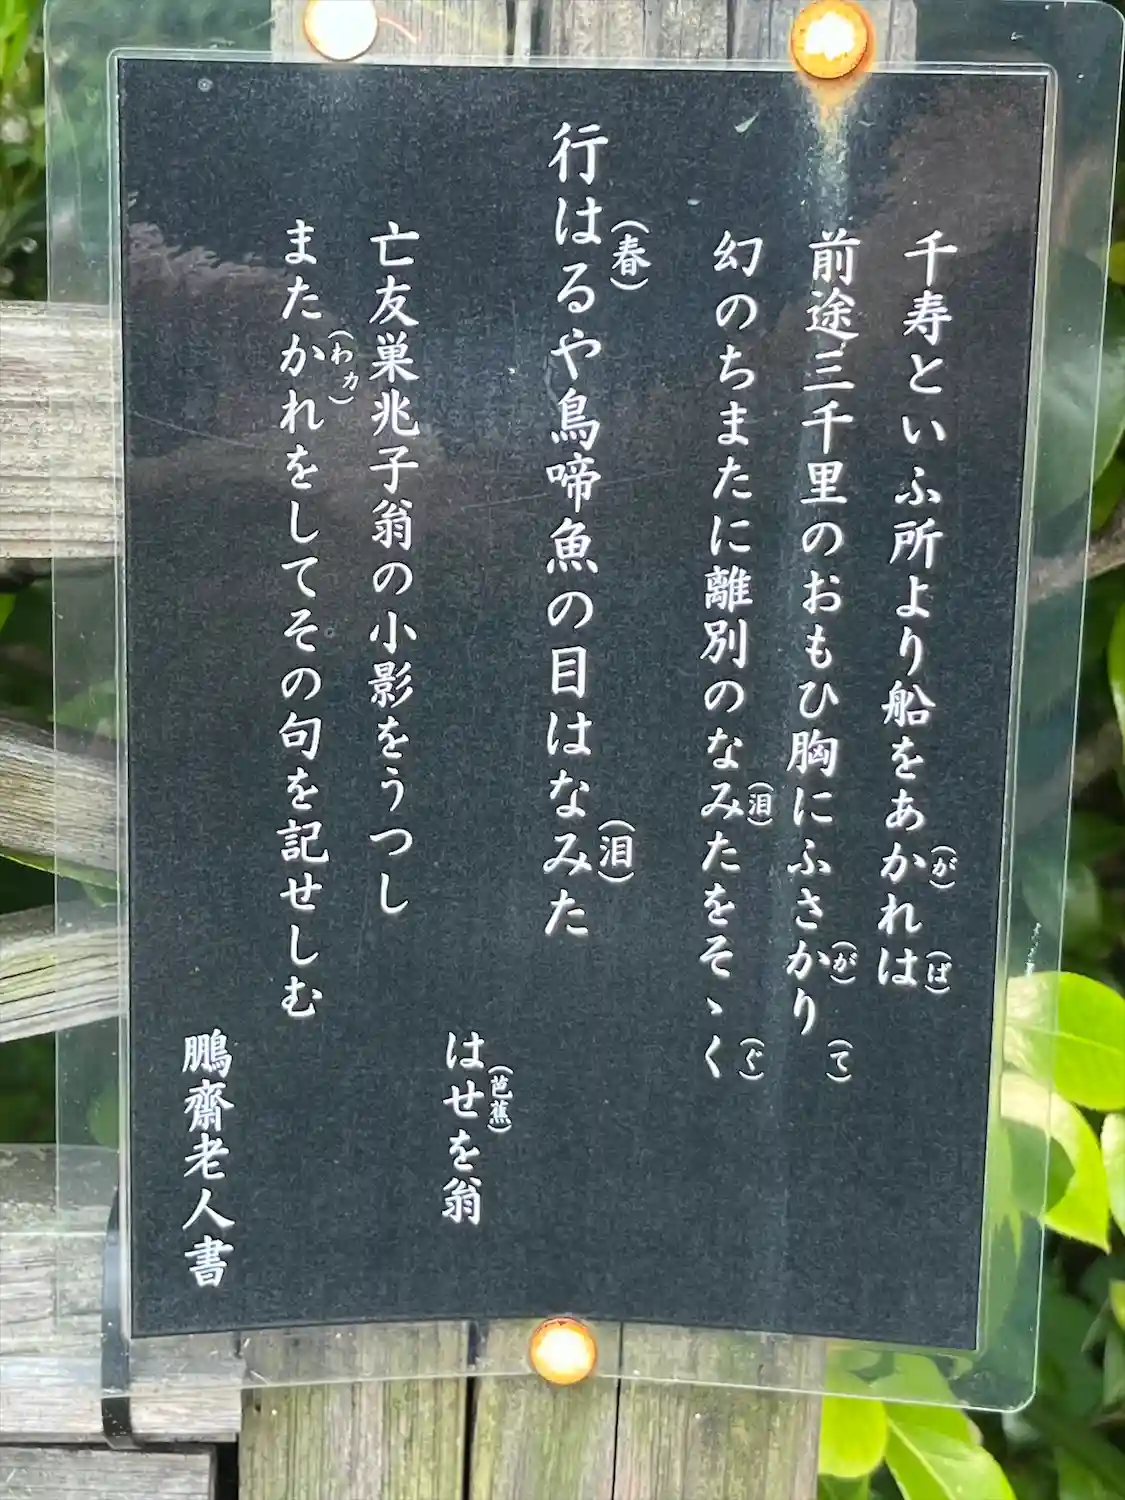 千寿といふ所より船をあかれは
(が)
(ば)
前途三千里のおもひ胸にふさかり
(が)
(て)
幻のちまたに離別のなみたをそゝく
(泪)
(ぐ)
行はるや鳥啼魚の目はなみた
(春)
(泪)
はせを翁
(芭蕉)
亡友巣兆子翁の小影をうつし
またかれをしてその句を記せしむ
(わカ)
鵬齋老人書